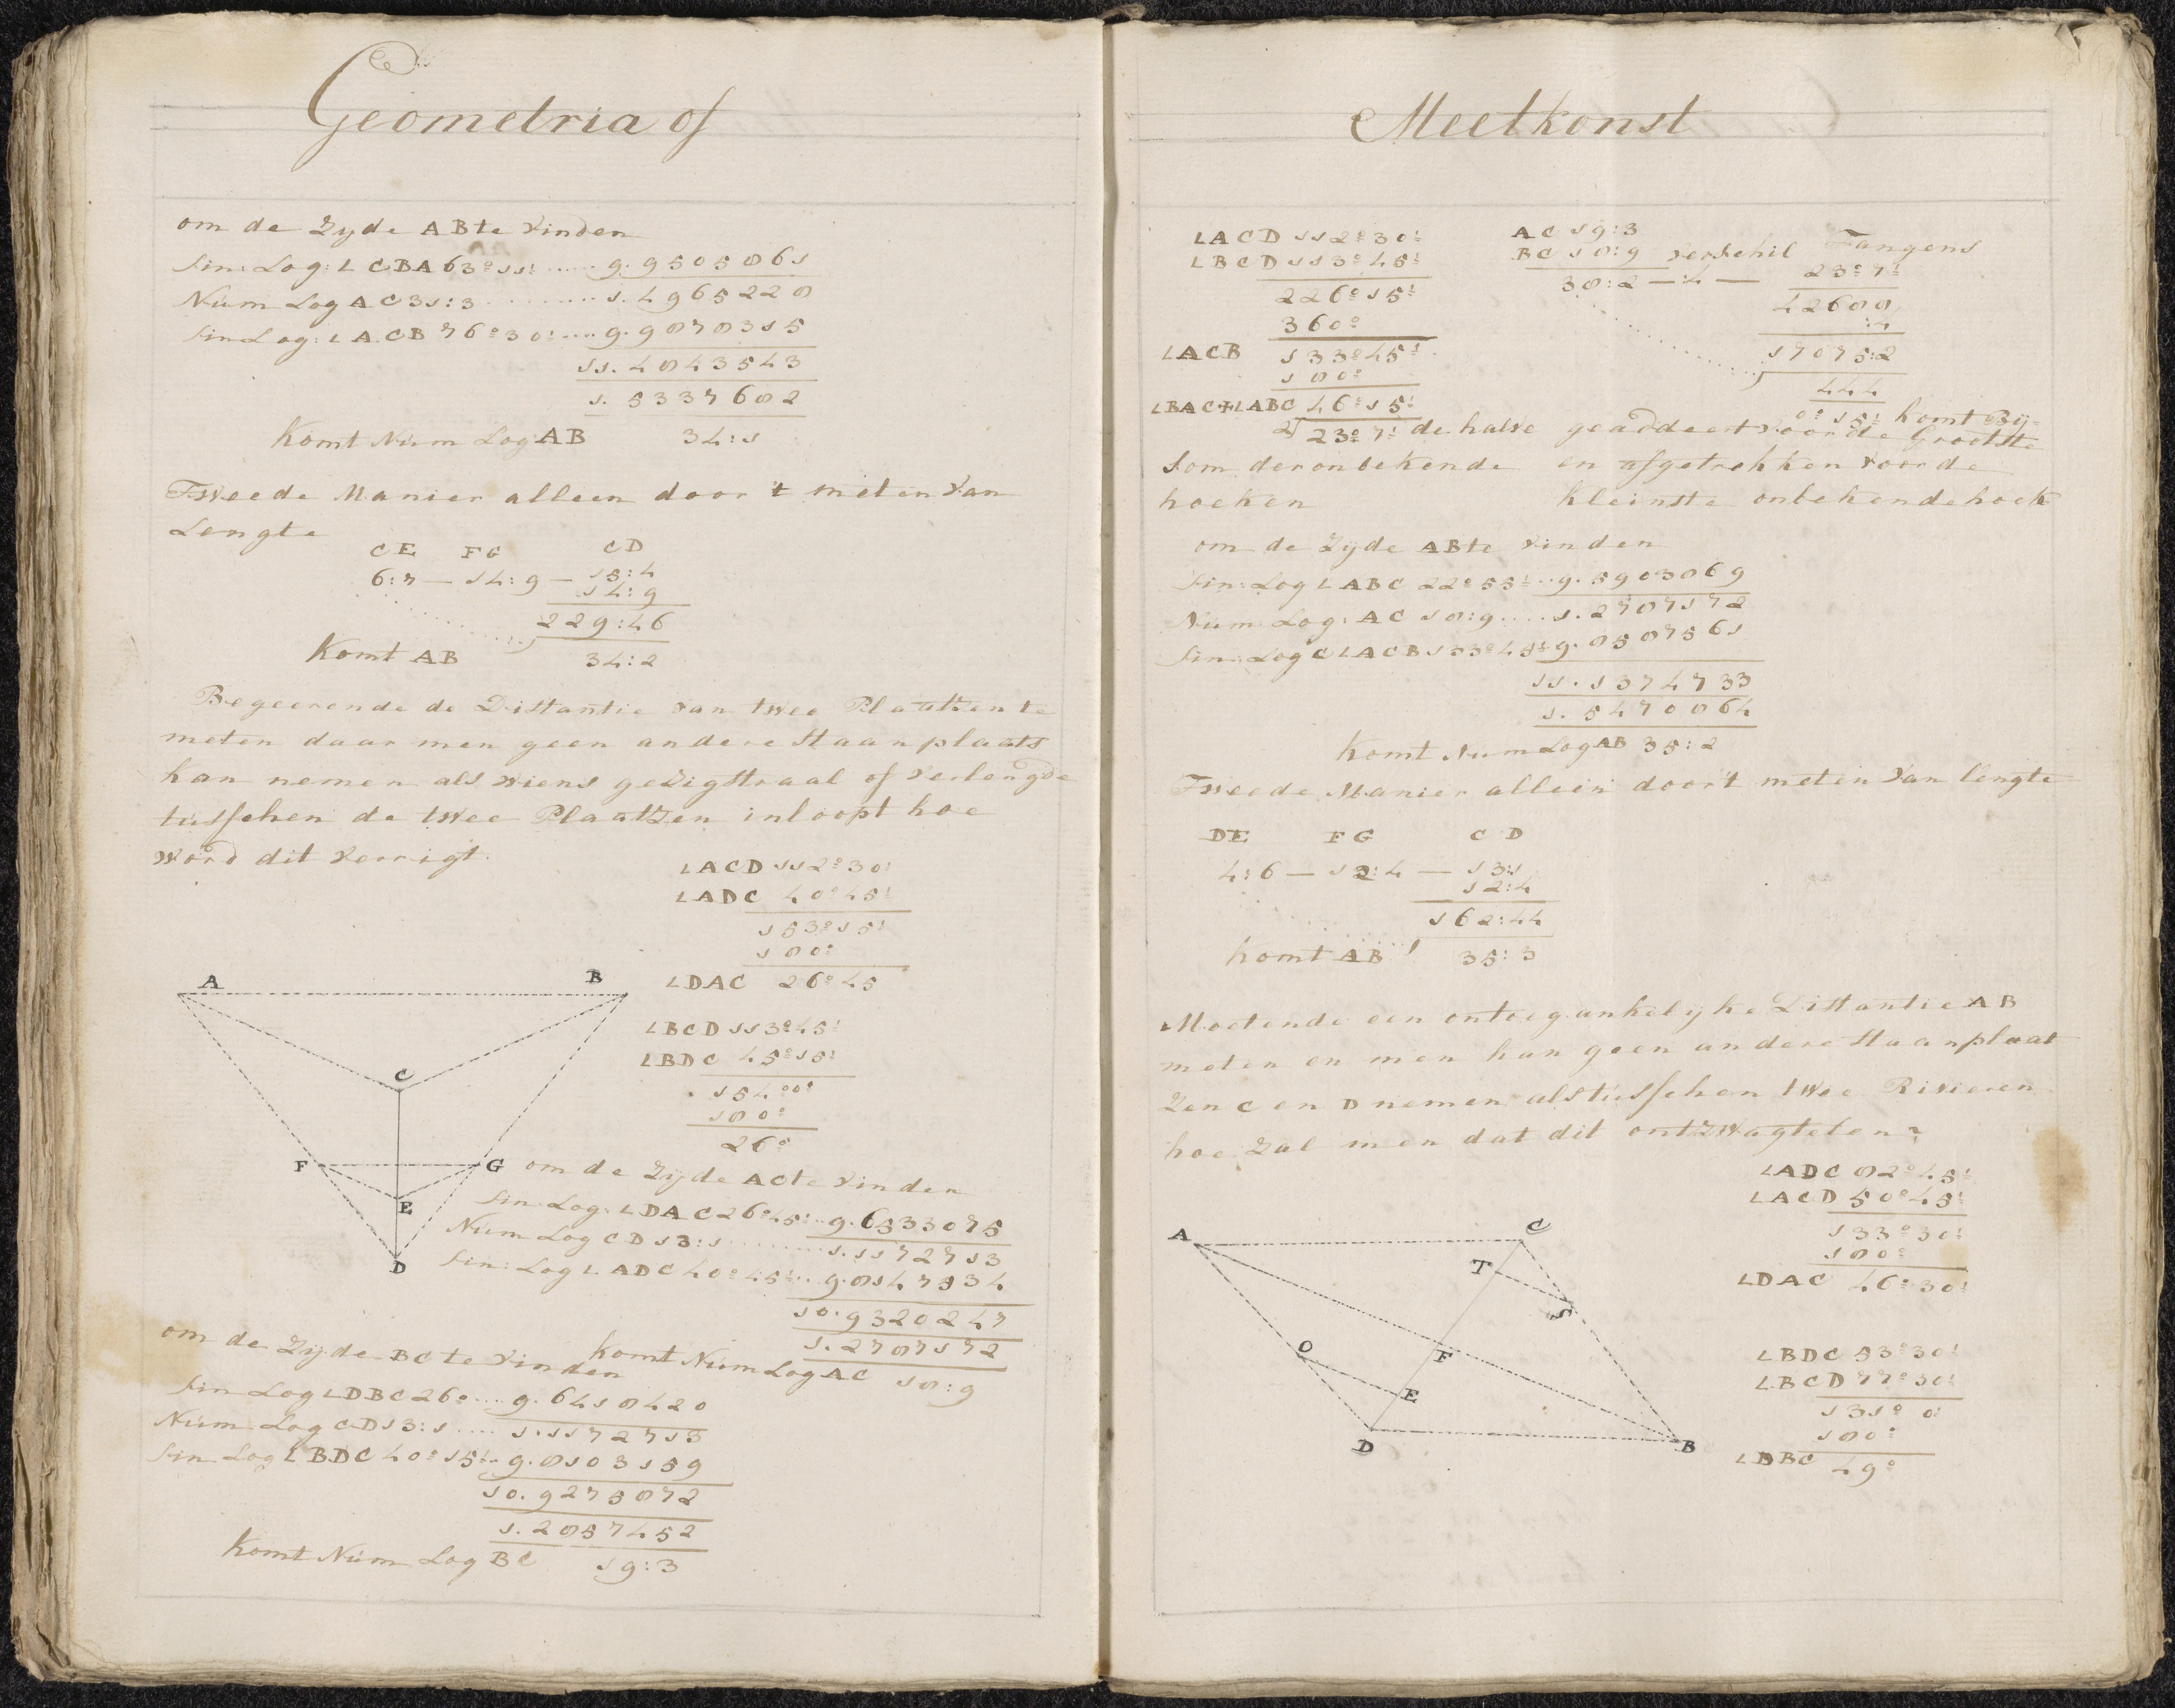 Geometria of
om de Zyde AB te vinden
Sin: Log: ∠ CBA 63°11' ..... 9.9505861
Num Log AC 31:3 ......... 1.4965228
Sin Log: ∠ ACB 76°30' .... 9.9878315
11.4843543
1.5337682
Komt Num Log AB 34:1
Tweede Manier alleen door 't meten van
Lengte
CE FG CD
6:7 — 14:9 — 15:4
14:9
229:46
Komt AB 34:2
Begeerende de Distantie van twee Plaatzen te
meten daar men geen andere staanplaats
kan nemen als wiens gezigstraal of verlengde
tusschen de twee Plaatzen inloopt hoe
word dit verrigt.
∠ACD 112°30'
∠ADC 40°45'
153°15'
180°
∠DAC 26°45
∠BCD 113°45'
∠BDC 45°15'
154°0°
180°
26°
A B C F G E D
om de Zyde AC te vinden
Sin Log: ∠DAC 26°45' .. 9.6533075
Num Log CD 13:1 ........ 1.1172713
Sin: Log ∠ ADC 40°45' .. 9.8147534
10.9320247
1.2787172
komt Num Log AC 18:9
om de Zyde BC te vinden
Sin Log ∠DBC 26° .... 9.6418420
Num Log CD 13:1 .... 1.1172713
Sin Log ∠BDC 40°15' .. 9.8103159
10.9275872
1.2857452
Komt Num Log BC 19:3
Meetkonst
∠ACD 112°30'
∠BCD 113°45'
226°15'
360°
∠ACB 133°45'
180°
∠BAC+∠ABC 46°15'
2) 23°7' de halve
Som der onbekende
hoeken
AC 19:3
BC 18:9 verschil Tangens
38:2 — :4 — 23°7'
42688
:4
17075:2
444
0°15' komt Bij-
geaddeert voor de Grootste
en afgetrokken voor de
kleinste onbekende hoek
om de Zyde AB te vinden
Sin: Log ∠ ABC 22°55' .. 9.5903869
Num Log: AC 18:9 .... 1.2787172
Sin: Log C ∠ACB 133°45' 9.8587561
11.1374733
1.5470864
Komt Num Log AB 35:2
Tweede Manier allein door't meten van lengte
DE FG CD
4:6 — 12:4 — 13:1
12:4
162:44
komt AB 35:3
Moetende een ontoegankelyke Distantie AB
meten en men kan geen andere staanplaat
zen C en D nemen als tusschen twee Rivieren
hoe zal men dat dit ontzwagtelen?
∠ADC 82°45'
∠ACD 50°45'
133°30'
180°
∠DAC 46°30'
A C T S O F E D B
∠BDC 53°30'
∠BCD 77°30'
131°0'
180°
∠DBC 49°